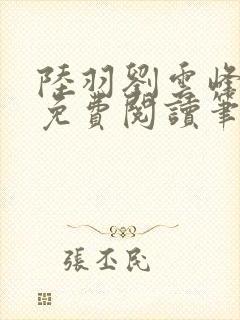 陸羽劉雲峰
免費閱讀筆
張丕民